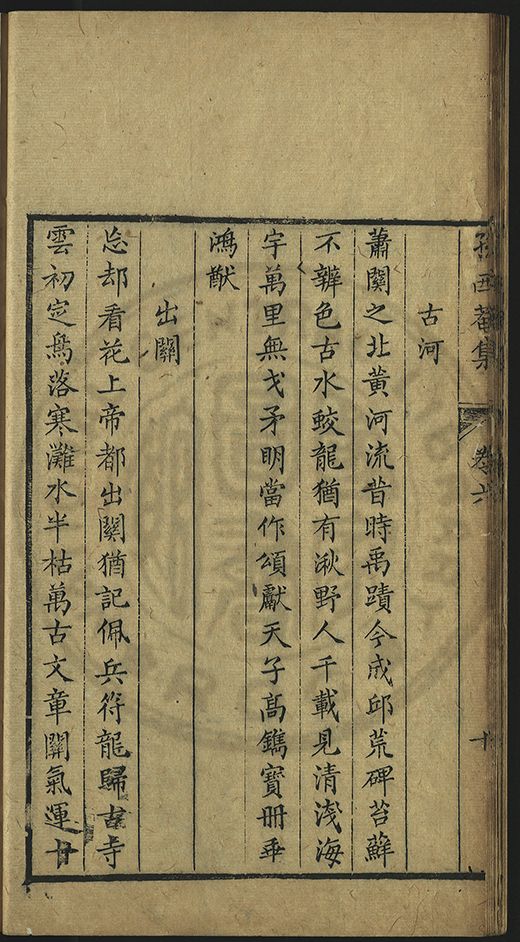 孫西菴集 卷六 十
古河
蕭關之北黃河流昔時禹蹟今成邱荒碑苔蘚
不辨色古水蛟龍猶有湫野人千載見清淺海
宇萬里無戈矛明當作頌獻天子高鐫寶冊垂
鴻猷
出關
忘却看花上帝都出關猶記佩兵符龍歸古寺
雲初定鴈落寒灘水半枯萬古文章關氣運廿